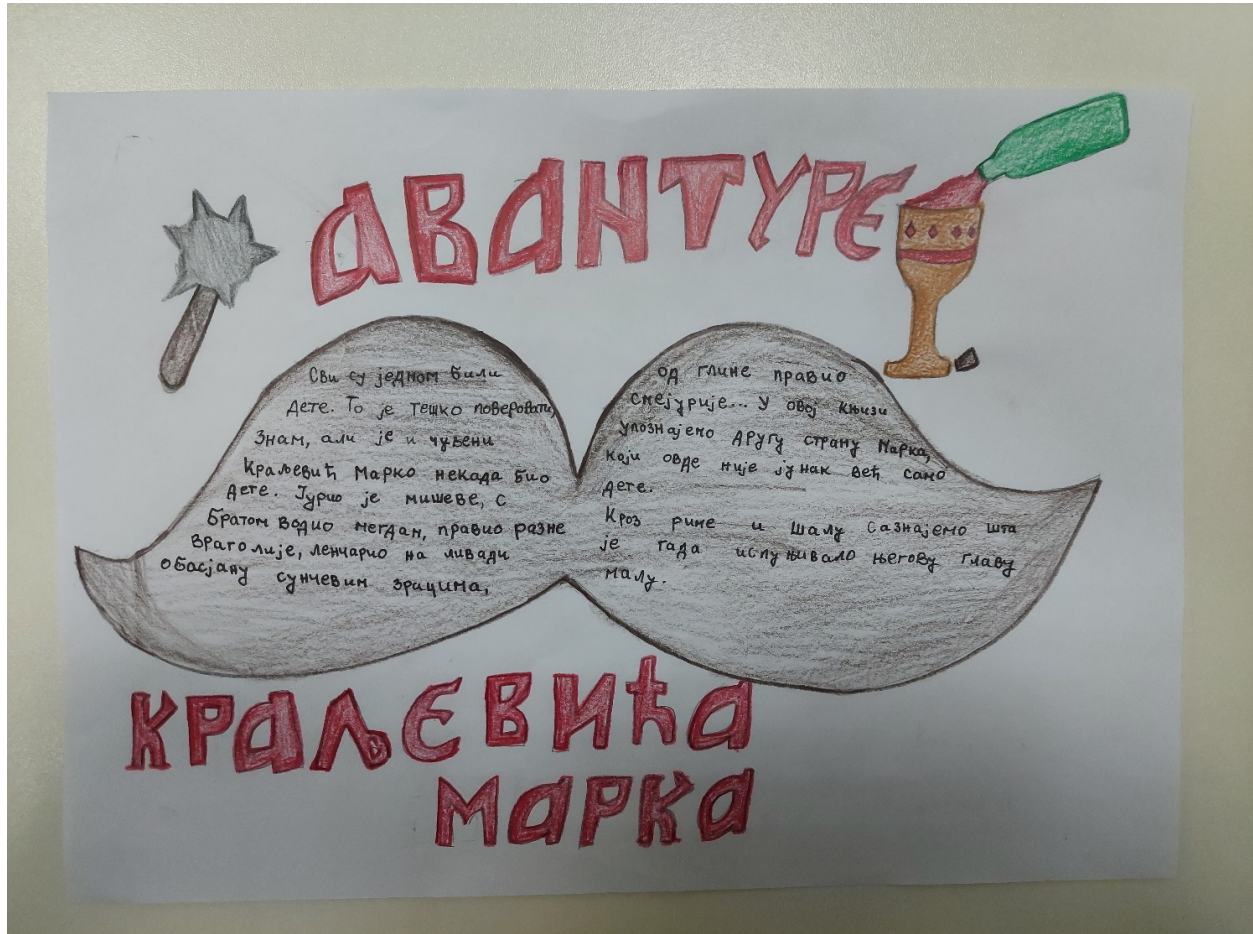 АВАНТУРЕ
Сви су једном били
дете. То је тешко поверовати,
знам, али је и чувени
Краљевић Марко некада био
дете. Јурио је мишеве, с
братом водио мегдан, правио разне
враголије, ленчарио на ливади
обасјану сунчевим зрацима,
од глине правио
смејурије... У овој књизи
упознајемо другу страну Марка,
који овде није јунак већ само
дете.
Кроз риме и шалу сазнајемо шта
је тада испуњивало његову главу
малу.
КРАЉЕВИЋА
МАРКА